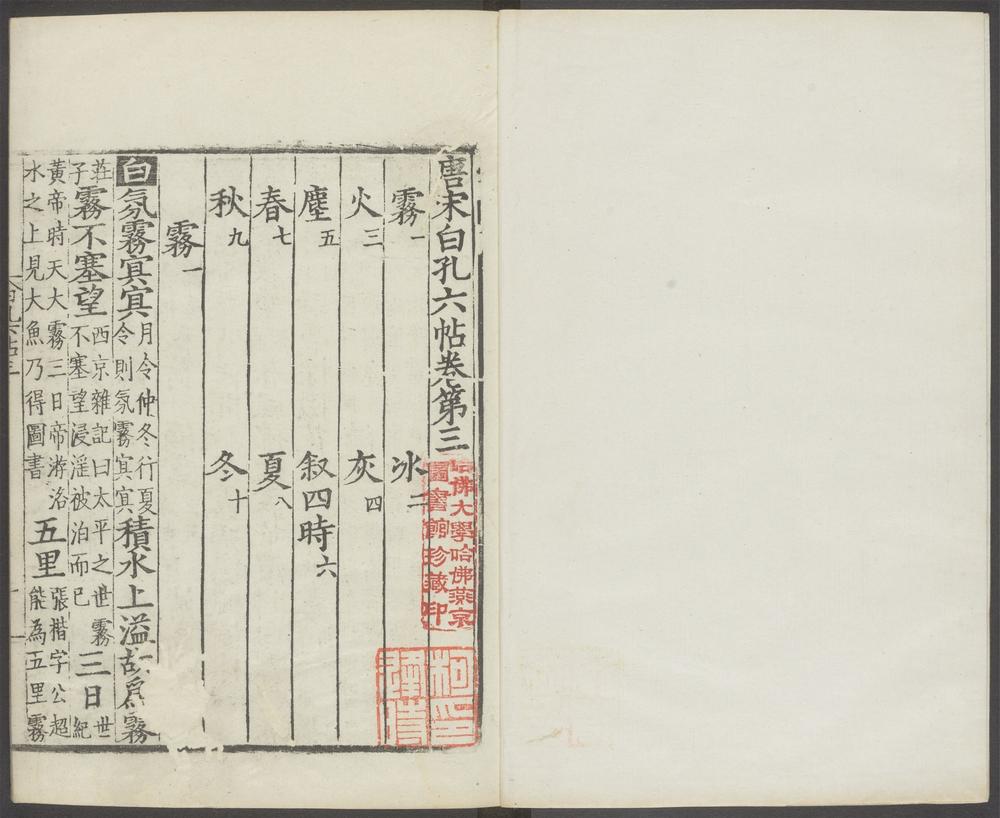 唐宋白孔六帖卷第三
哈佛大學哈佛燕京
圖書館珍藏印
霧一 冰二
火三 灰四
塵五 叙四時六
春七 夏八
秋九 冬十
霧一
白氛霧㝠㝠月令仲冬行夏令則氛霧㝠㝠積水上溢故為霧
莊子霧不塞望西京雜記曰太平之世霧不塞望浸淫被泊而已三日世紀
黃帝時天大霧三日帝游洛水之上見大魚乃得圖書五里張楷字公超能為五里霧